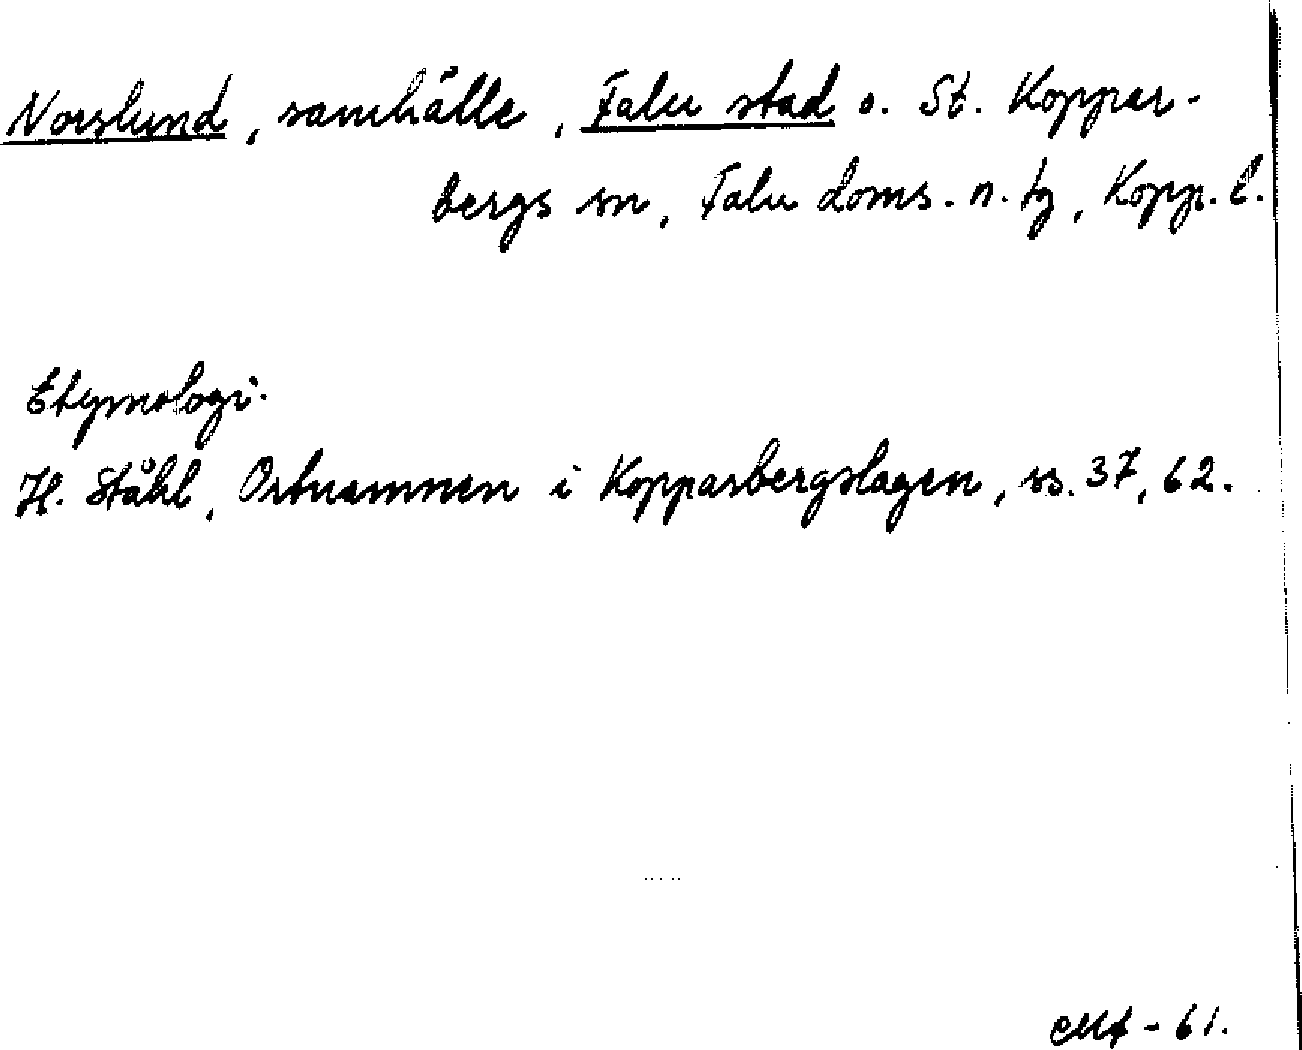 Norslund, samhälle, Falu stad o. St. Koppar-
bergs sn, Falu doms. n. tg, Kopp. l.
Etymologi.
H. Ståhl, Ortnamnen i Kopparbergslagen, ss. 37, 62.
- 61.